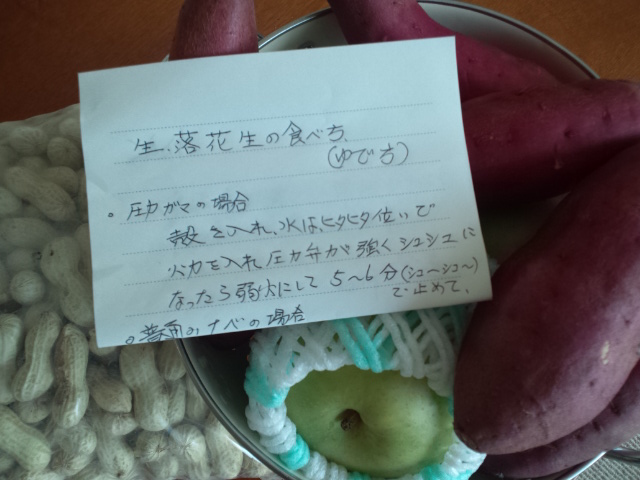 生、落花生の食べ方、
(ゆで方)
。圧力ガマの場合
殻を入れ、水はヒタヒタ位いで
火力を入れ圧力弁が強くシュシュに
なったら弱火にして5〜6分(シュ〜シュ〜)
で止めて、
。普通のナベの場合